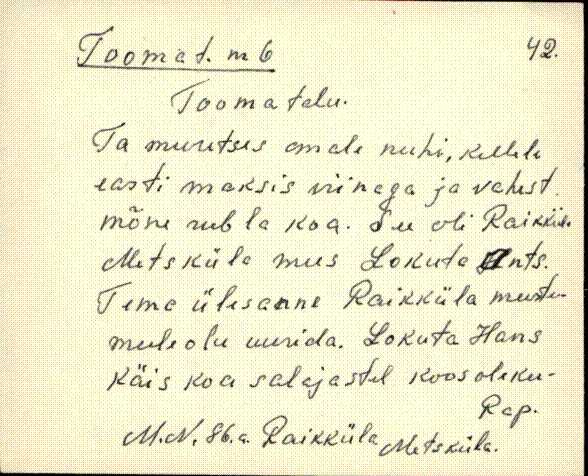 Toomat. m 6
42.
Tooma talu.
Ta muretses omale nuhi, kellele
easti maksis viinaga ja vahest
mõne rubla koa. See oli Raikküla
Metsküla mus Lokuta Ants.
Tema ülesanne Raikküla
meeleolu uurida. Lokuta Hans
käis koa salajastel koosoleku-
Rap.
M.N. 86.a. Raikküla Metsküla.